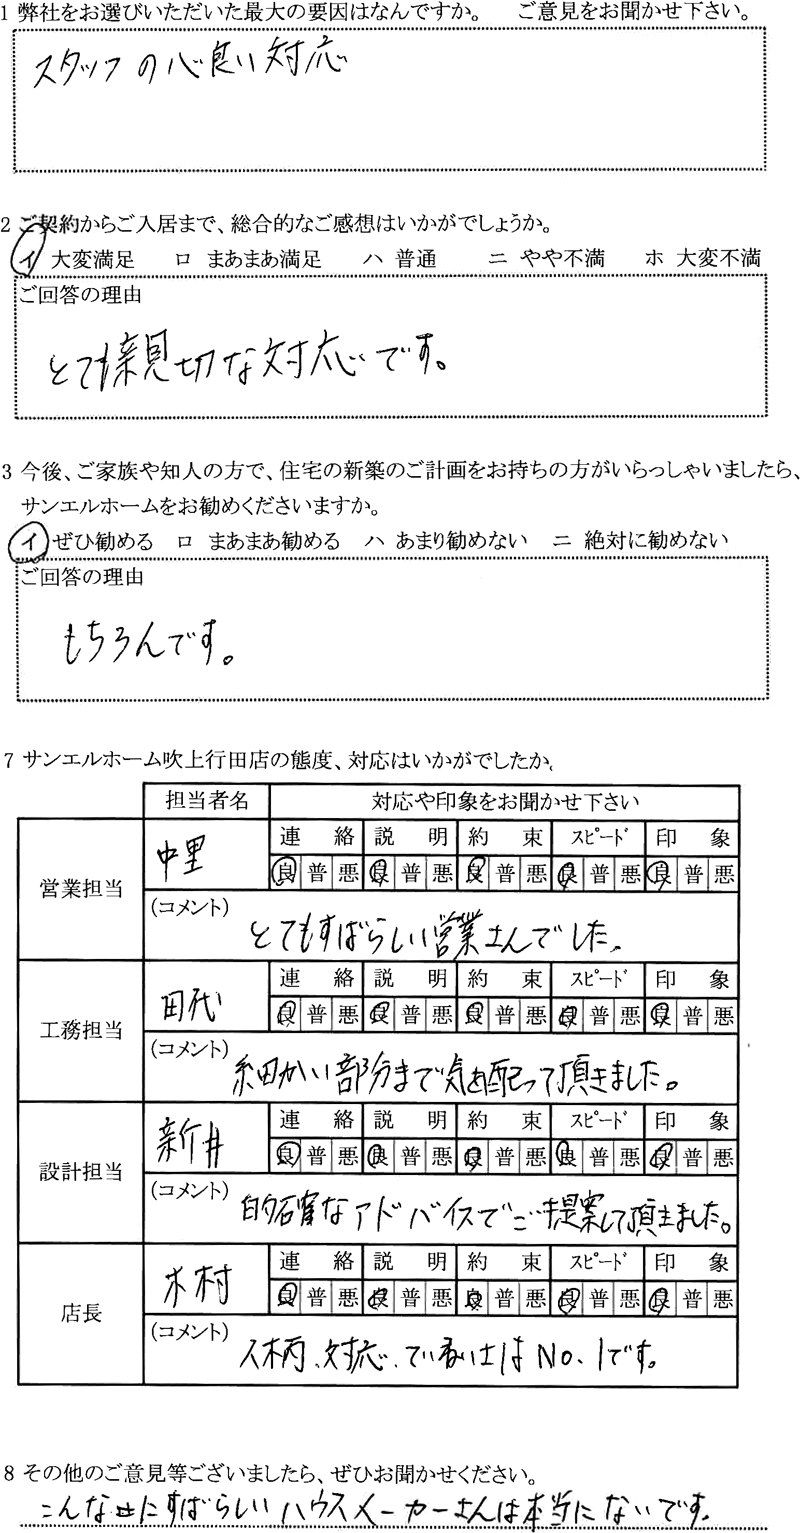 1 弊社をお選びいただいた最大の要因はなんですか。 ご意見をお聞かせ下さい。
スタッフの心良い対応
2 ご契約からご入居まで、総合的なご感想はいかがでしょうか。
イ 大変満足 ロ まあまあ満足 ハ 普通 ニ やや不満 ホ 大変不満
ご回答の理由
とても親切な対応です。
3 今後、ご家族や知人の方で、住宅の新築のご計画をお持ちの方がいらっしゃいましたら、
サンエルホームをお勧めくださいますか。
イ ぜひ勧める ロ まあまあ勧める ハ あまり勧めない ニ 絶対に勧めない
ご回答の理由
もちろんです。
7 サンエルホーム吹上行田店の態度、対応はいかがでしたか。
担当者名 対応や印象をお聞かせ下さい
営業担当 中里 連絡 説明 約束 スピード 印象
良 普 悪 良 普 悪 良 普 悪 良 普 悪 良 普 悪
(コメント) とてもすばらしい営業さんでした。
工務担当 田代 連絡 説明 約束 スピード 印象
良 普 悪 良 普 悪 良 普 悪 良 普 悪 良 普 悪
(コメント) 細かい部分まで気を配って頂きました。
設計担当 新井 連絡 説明 約束 スピード 印象
良 普 悪 良 普 悪 良 普 悪 良 普 悪 良 普 悪
(コメント) 的確なアドバイスでご提案して頂きました。
店長 木村 連絡 説明 約束 スピード 印象
良 普 悪 良 普 悪 良 普 悪 良 普 悪 良 普 悪
(コメント) 人柄、対応、ていねいさはNo.1です。
8 その他のご意見等ございましたら、ぜひお聞かせください。
こんなにすばらしいハウスメーカーさんは本当にないです。